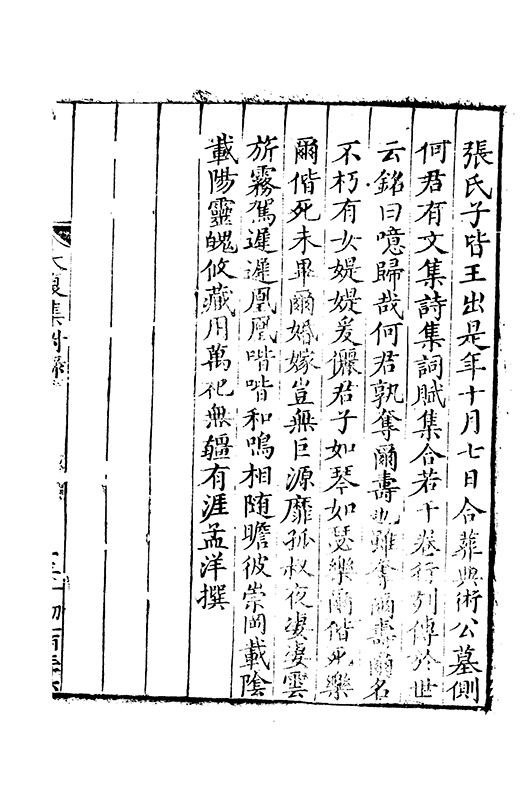 張氏子皆王出是年十月七日合葬與術公墓側
何君有文集詩集詞賦集合若干卷行列傳於世
云銘曰噫歸哉何君孰奪爾壽也雖奪爾壽爾名
不朽有女媞媞爰儷君子如琴如瑟樂爾偕死樂
爾偕死未畢爾婚嫁豈無巨源靡孤叔夜淒淒雲
旂霧駕遲遲鳳凰喈喈和鳴相随瞻彼崇岡載陰
載陽靈魄攸藏用萬祀無疆有涯孟洋撰
大復集附錄